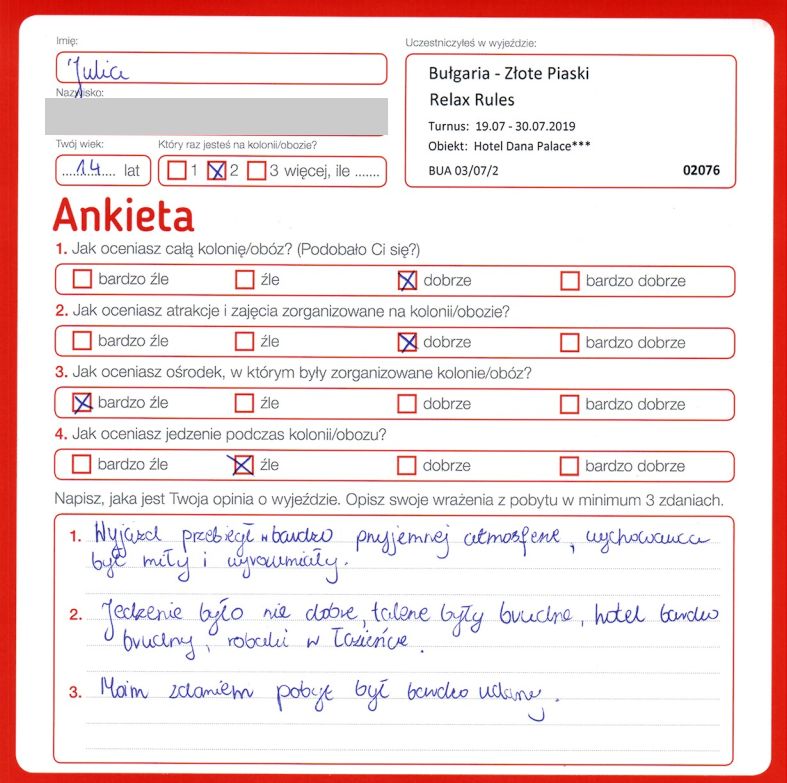 Imię:
Julia
Nazwisko:
Uczestniczyłeś w wyjeździe:
Bułgaria - Złote Piaski
Relax Rules
Turnus: 19.07 - 30.07.2019
Obiekt: Hotel Dana Palace***
BUA 03/07/2 02076
Twój wiek: Który raz jesteś na kolonii/obozie?
14 lat 1 2 3 więcej, ile .......
Ankieta
1. Jak oceniasz całą kolonię/obóz? (Podobało Ci się?)
bardzo źle źle dobrze bardzo dobrze
2. Jak oceniasz atrakcje i zajęcia zorganizowane na kolonii/obozie?
bardzo źle źle dobrze bardzo dobrze
3. Jak oceniasz ośrodek, w którym były zorganizowane kolonie/obóz?
bardzo źle źle dobrze bardzo dobrze
4. Jak oceniasz jedzenie podczas kolonii/obozu?
bardzo źle źle dobrze bardzo dobrze
Napisz, jaka jest Twoja opinia o wyjeździe. Opisz swoje wrażenia z pobytu w minimum 3 zdaniach.
1. Wyjazd przebiegł w bardzo przyjemnej atmosferze, wychowawca
był miły i wyrozumiały.
2. Jedzenie było nie dobre, talerze były brudne, hotel bardzo
brudny, robaki w łazience.
3. Moim zdaniem pobyt był bardzo udany.